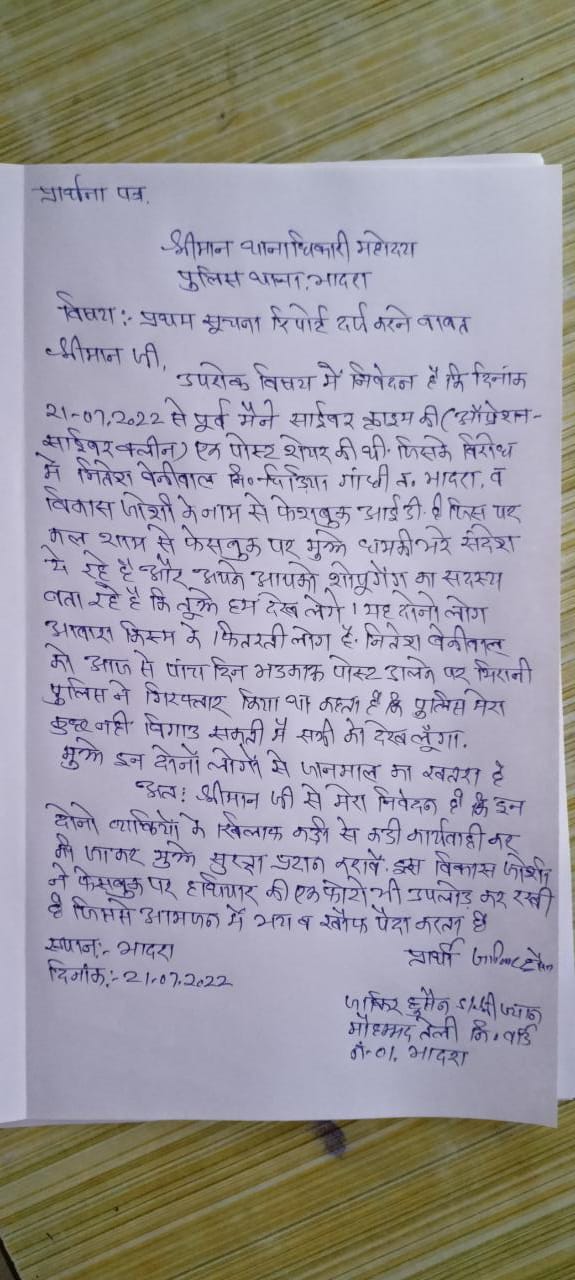 प्रार्थना पत्र.
श्रीमान थानाधिकारी महोदय
पुलिस थाना, भादरा
विषय:- प्रथम सूचना रिपोर्ट दर्ज करने बाबत
श्रीमान जी,
उपरोक्त विषय में निवेदन है कि दिनांक
21-07.2022 से पूर्व मैने साईबर क्राइम की (ऑप्रेशन-
साईबर क्लीन) एक पोस्ट शेयर की थी. जिसके विरोध
में नितेश बेनीवाल नि. गांधी भादरा, व
विकास जोशी के नाम से फेशबुक आई डी. है जिस पर
कल शाम से फेसबुक पर मुझे धमकी भरे संदेश
दे रहे है और अपने आपको शोपुगैंग का सदस्य
बता रहे है कि तूझे हम देख लेंगे । यह दोनो लोग
आवारा किस्म के फितरती लोग है. नितेश बेनीवाल
को आज से पांच दिन भडकाऊ पोस्ट डालने पर भिरानी
पुलिस ने गिरफ्तार किया था कहता है कि पुलिस मेरा
कुछ नही बिगाड सकती मैं सभी को देख लूँगा.
मुझे इन दोनों लोगों से जानमाल का खतरा है
अत: श्रीमान जी से मेरा निवेदन है कि इन
दोनो व्यक्तियों के खिलाफ कडी से कडी कार्यवाही कर
की जाकर मुझे सुरक्षा प्रदान करावें. इस विकास जोशी
ने फेसबुक पर हथियार की एक फोटो भी उपलोड कर रखी
है जिससे आमजन में भय व खौफ पैदा करता है
स्थान:- भादरा
दिनांक:- 21.07.2022
प्रार्थी
जाकिर हुसैन S/० श्री
मौहम्मद तेली नि. वार्ड
नं-01, भादरा